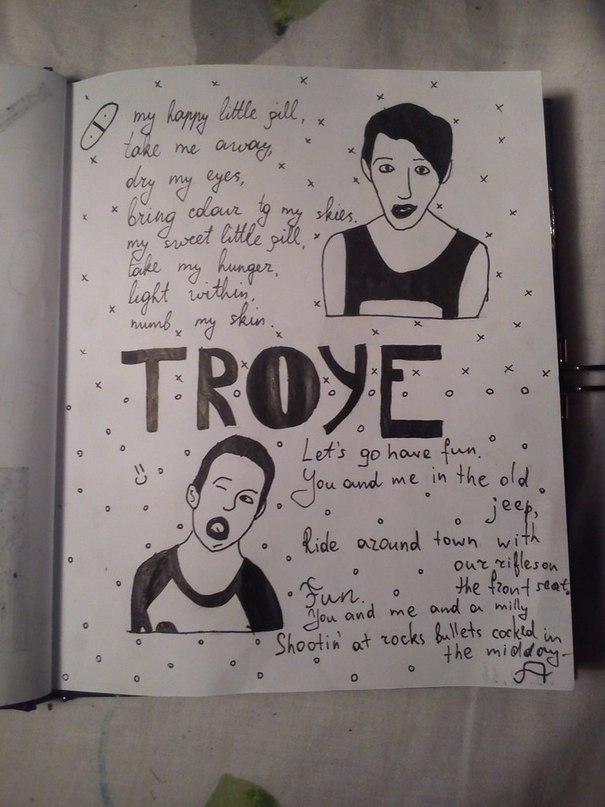 my happy little pill,
take me away,
dry my eyes,
bring colour to my skies.
my sweet little pill,
take my hunger,
light within,
numb my skin.
TROYE
Let's go have fun.
You and me in the old
jeep,
Ride around town with
our rifles on
the front seat.
Fun.
You and me and a milly
Shootin' at rocks bullets cocked in
the midday